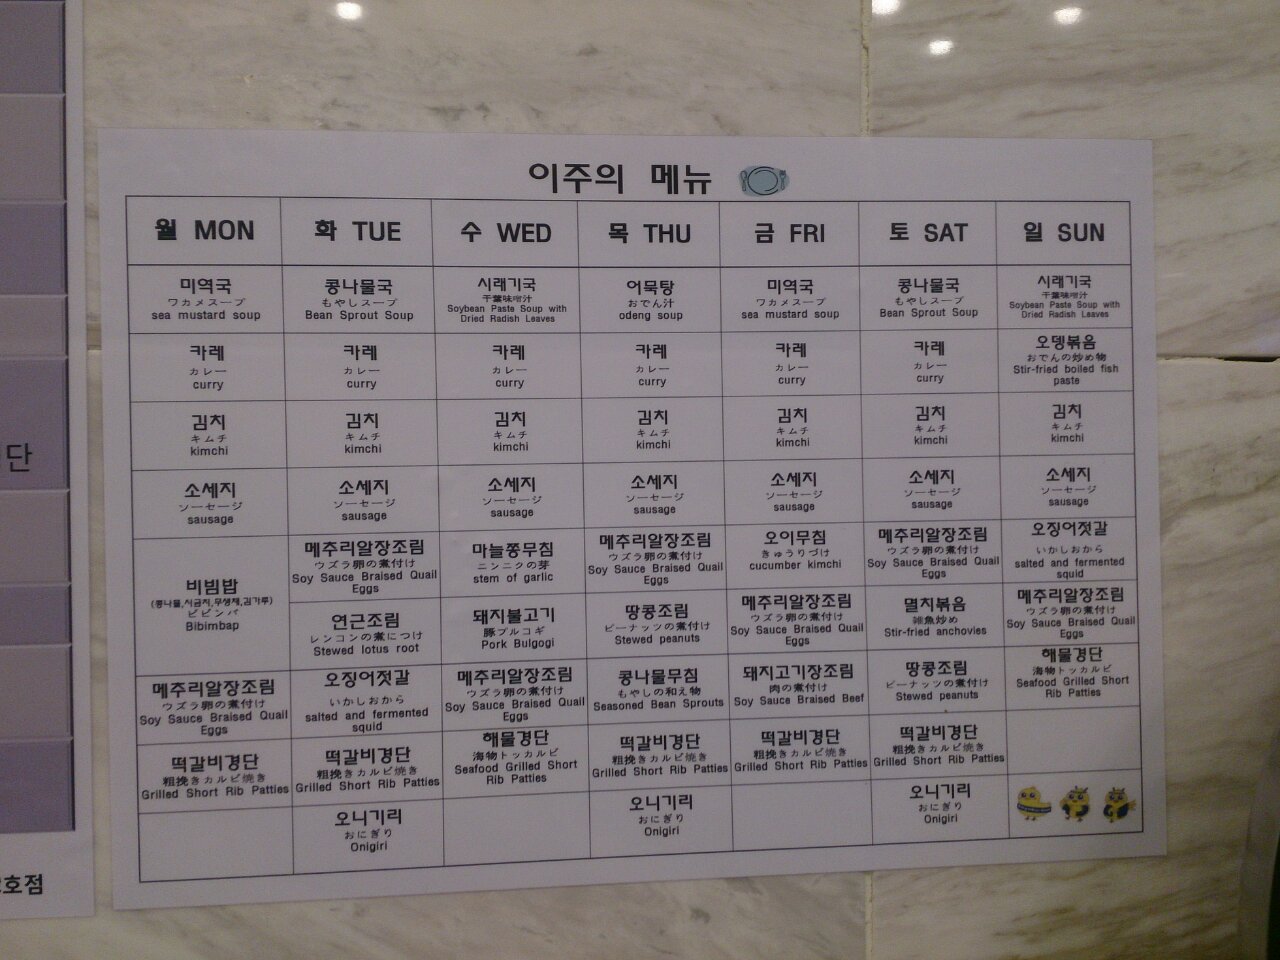 이주의 메뉴
월 MON
화 TUE
수 WED
목 THU
금 FRI
토 SAT
일 SUN
미역국
ワカメスープ
sea mustard soup
콩나물국
もやしスープ
Bean Sprout Soup
시래기국
干葉味噌汁
Soybean Paste Soup with
Dried Radish Leaves
어묵탕
おでん汁
odeng soup
미역국
ワカメスープ
sea mustard soup
콩나물국
もやしスープ
Bean Sprout Soup
시래기국
干葉味噌汁
Soybean Paste Soup with
Dried Radish Leaves
카레
カレー
curry
카레
カレー
curry
카레
カレー
curry
카레
カレー
curry
카레
カレー
curry
카레
カレー
curry
오뎅볶음
おでんの炒め物
Stir-fried boiled fish
paste
김치
キムチ
kimchi
김치
キムチ
kimchi
김치
キムチ
kimchi
김치
キムチ
kimchi
김치
キムチ
kimchi
김치
キムチ
kimchi
김치
キムチ
kimchi
소세지
ソーセージ
sausage
소세지
ソーセージ
sausage
소세지
ソーセージ
sausage
소세지
ソーセージ
sausage
소세지
ソーセージ
sausage
소세지
ソーセージ
sausage
소세지
ソーセージ
sausage
비빔밥
(콩나물,시금치,무생채,김가루)
ビビンバ
Bibimbap
메추리알장조림
ウズラ卵の煮付け
Soy Sauce Braised Quail
Eggs
마늘쫑무침
ニンニクの芽
stem of garlic
메추리알장조림
ウズラ卵の煮付け
Soy Sauce Braised Quail
Eggs
오이무침
きゅうりづけ
cucumber kimchi
메추리알장조림
ウズラ卵の煮付け
Soy Sauce Braised Quail
Eggs
오징어젓갈
いかしおから
salted and fermented
squid
연근조림
レンコンの煮につけ
Stewed lotus root
돼지불고기
豚プルコギ
Pork Bulgogi
땅콩조림
ピーナッツの煮付け
Stewed peanuts
메추리알장조림
ウズラ卵の煮付け
Soy Sauce Braised Quail
Eggs
멸치볶음
雑魚炒め
Stir-fried anchovies
메추리알장조림
ウズラ卵の煮付け
Soy Sauce Braised Quail
Eggs
메추리알장조림
ウズラ卵の煮付け
Soy Sauce Braised Quail
Eggs
오징어젓갈
いかしおから
salted and fermented
squid
메추리알장조림
ウズラ卵の煮付け
Soy Sauce Braised Quail
Eggs
콩나물무침
もやしの和え物
Seasoned Bean Sprouts
돼지고기장조림
肉の煮付け
Soy Sauce Braised Beef
땅콩조림
ピーナッツの煮付け
Stewed peanuts
해물경단
海物トッカルビ
Seafood Grilled Short
Rib Patties
떡갈비경단
粗挽きカルビ焼き
Grilled Short Rib Patties
떡갈비경단
粗挽きカルビ焼き
Grilled Short Rib Patties
해물경단
海物トッカルビ
Seafood Grilled Short
Rib Patties
떡갈비경단
粗挽きカルビ焼き
Grilled Short Rib Patties
떡갈비경단
粗挽きカルビ焼き
Grilled Short Rib Patties
떡갈비경단
粗挽きカルビ焼き
Grilled Short Rib Patties
오니기리
おにぎり
Onigiri
오니기리
おにぎり
Onigiri
오니기리
おにぎり
Onigiri
단
호점